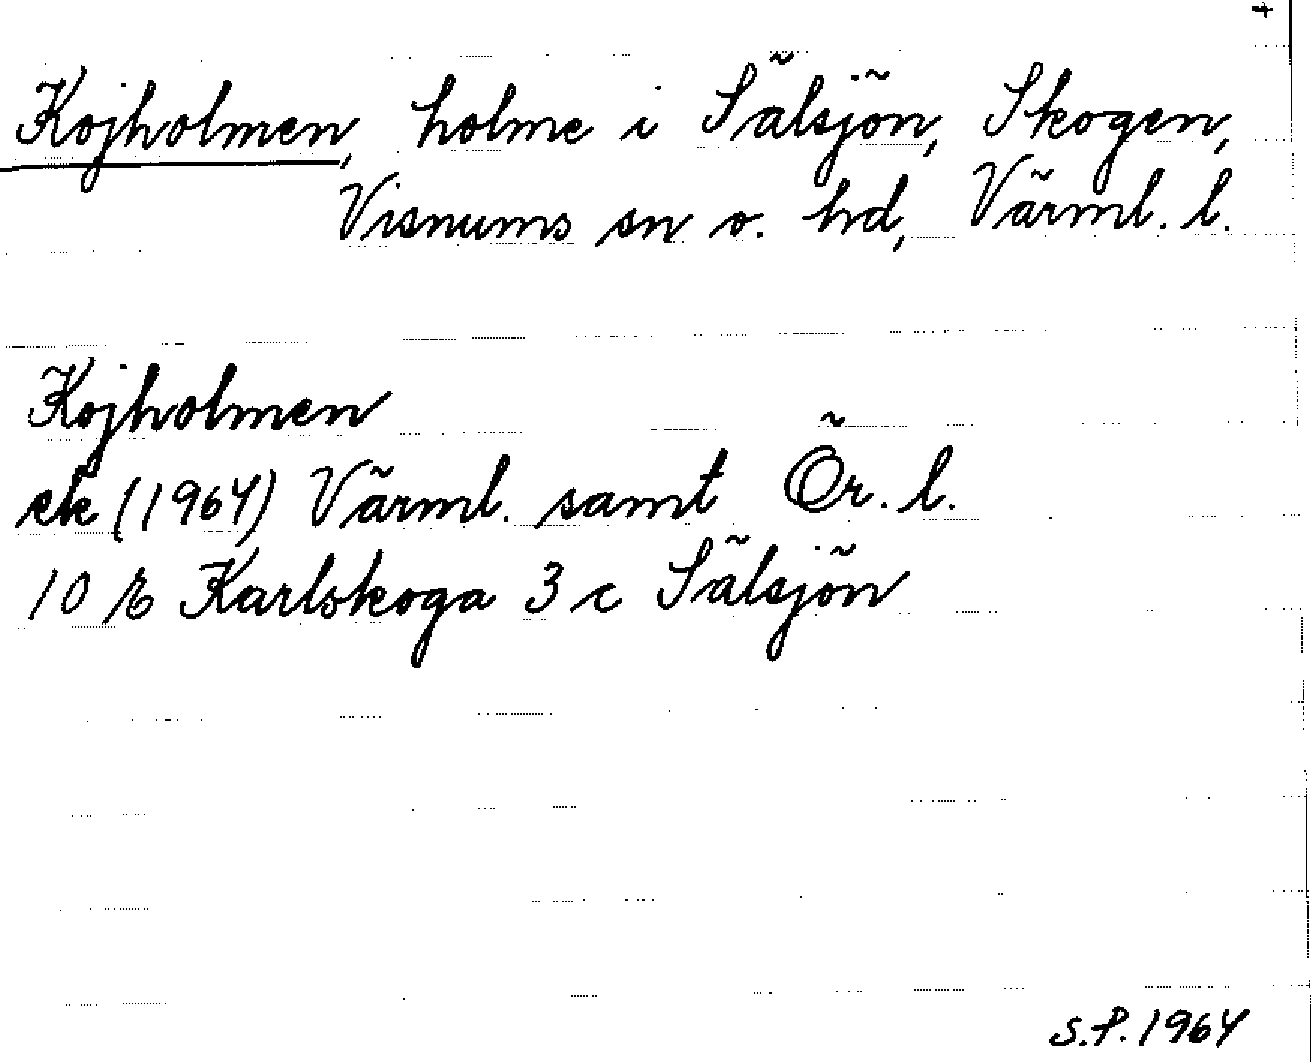 Kojholmen, holme i Sälsjön, Skogen,
Visnums sn o. hd, Värml. l.
Kojholmen
ek (1964) Värml. samt Ör. l.
10 E Karlskoga 3 c Sälsjön
S.P. 1964